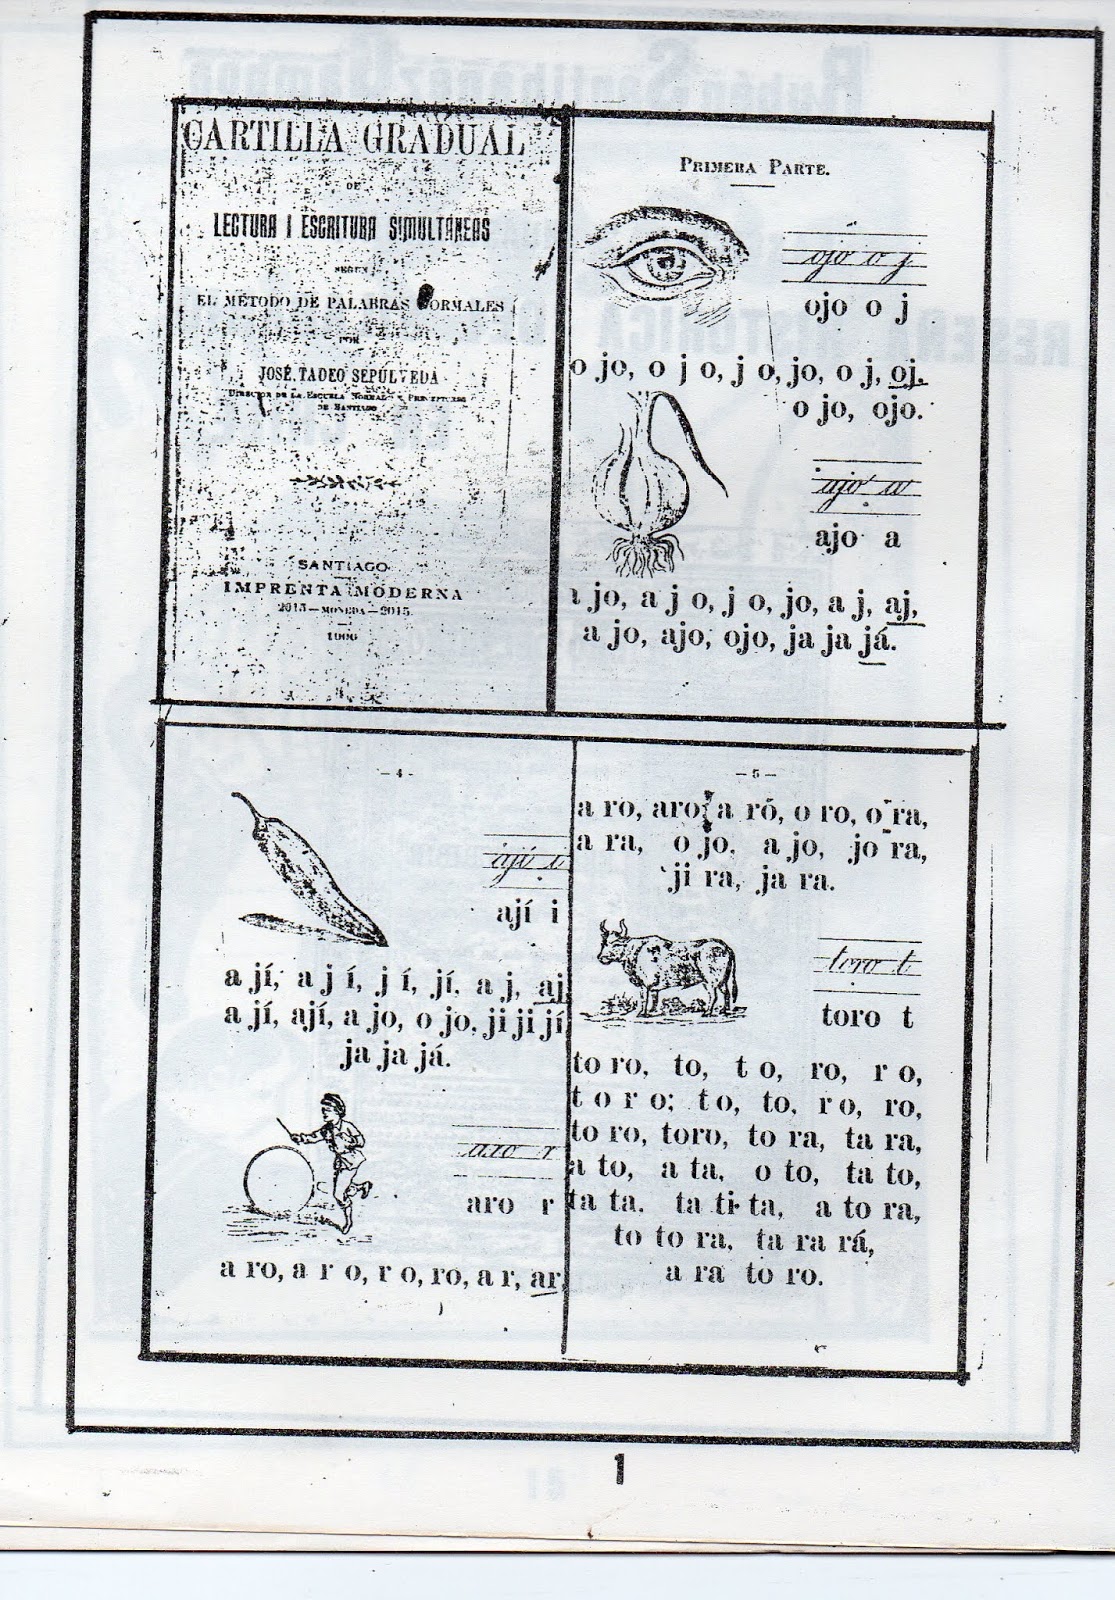 CARTILLA GRADUAL
DE
LECTURA I ESCRITURA SIMULTÁNEAS
SEGUN
EL MÉTODO DE PALABRAS NORMALES
POR
JOSÉ TADEO SEPÚLVEDA
DIRECTOR DE LA ESCUELA NORMAL DE PRECEPTORES
DE SANTIAGO
SANTIAGO
IMPRENTA MODERNA
2015—MONEDA—2015
PRIMERA PARTE.
ojo o j
ojo o j
o jo, o j o, j o, jo, o j, oj.
o jo, ojo.
ajo a
ajo a
a jo, a j o, j o, jo, a j, aj,
a jo, ajo, ojo, ja ja já.
- 4 -
ají i
ají i
a jí, a j í, j í, jí, a j, aj,
a jí, ají, a jo, o jo, ji ji jí,
ja ja já.
aro r
aro r
a ro, a r o, r o, ro, a r, ar,
— 5 —
a ro, aro, a ró, o ro, o ra,
a ra, o jo, a jo, jo ra,
ji ra, ja ra.
toro t
toro t
to ro, to, t o, ro, r o,
t o r o; t o, to, r o, ro,
to ro, toro, to ra, ta ra,
a to, a ta, o to, ta to,
ta ta, ta ti ta, a to ra,
to to ra, ta ra rá,
a ra to ro.
1